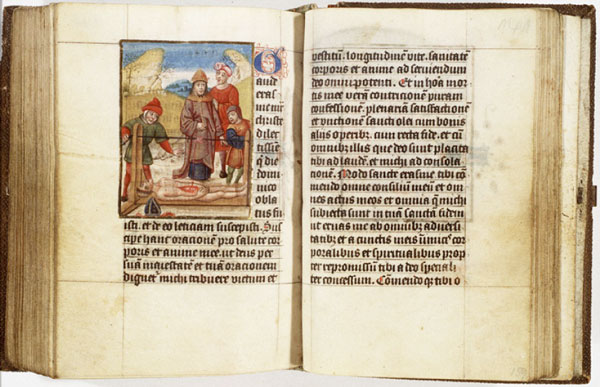 G
aude
eras
me mr̄
christi
dilec
tissim
q̄ die
domi
nico
obla
tus fu
isti. et de eo leticiam suscepisti. Sus
cipe hanc oracionē pro salute cor
poris et anime mee. ut deus per
suā maiestatē et tuā oracionem
dignet̄ michi tribuere victum et
vestitū. longitudinem vite. sanitatē
corporis et anime ad serviendum
deo omnipotenti. Et in hora mor
tis mee verā contricionē puram
confessionē. plenariam satisfactionē
et unctionē sancti olei cum bonis
aliis operibꝫ. cum recta fide. et cū
omnibꝫ illis que deo sunt placita
tibi ad laudē. et michi ad consola
cionē. Modo sancte erasme tibi cō
mendo omne consiliū meū et om
nes actus meos et omnia q̄ michi
subiecta sunt in tuā sanctā fidem
ut eruas me ab omnibꝫ adversi
tatibꝫ et a cunctis meis inimicis cor
poralibus et spiritualibus prop
ter repromissum tibi a deo speciali
ter concessum. Cōmendo qꝫ tibi o